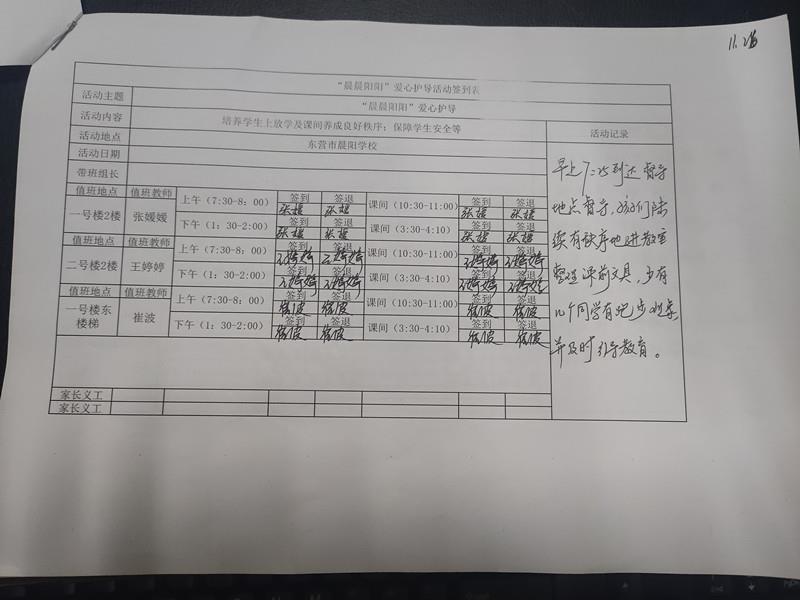 11.26
“晨晨阳阳”爱心护导活动签到表
活动主题 “晨晨阳阳”爱心护导
活动内容 培养学生上放学及课间养成良好秩序；保障学生安全等 活动记录
活动地点 东营市晨阳学校
活动日期
带班组长
值班地点 值班教师 上午（7:30-8：00） 签到 签退 课间（10:30-11:00） 签到 签退
张媛 张媛 张媛 张媛
一号楼2楼 张媛媛 下午（1：30-2:00） 签到 签退 课间（3:30-4:10） 签到 签退
张媛 张媛 张媛 张媛
值班地点 值班教师 上午（7:30-8：00） 签到 签退 课间（10:30-11:00） 签到 签退
王婷婷 王婷婷 王婷婷 王婷婷
二号楼2楼 王婷婷 下午（1：30-2:00） 签到 签退 课间（3:30-4:10） 签到 签退
王婷婷 王婷婷 王婷婷 王婷婷
值班地点 值班教师 上午（7:30-8：00） 签到 签退 课间（10:30-11:00） 签到 签退
崔波 崔波 崔波 崔波
一号楼东楼梯 崔波 下午（1：30-2:00） 签到 签退 课间（3:30-4:10） 签到 签退
崔波 崔波 崔波 崔波
家长义工
家长义工
早上7:25到达督导
地点督导，孩们陆
续有秩序地进教室
整理课前文具，少有
几个同学有跑步现象，
并及时引导教育。